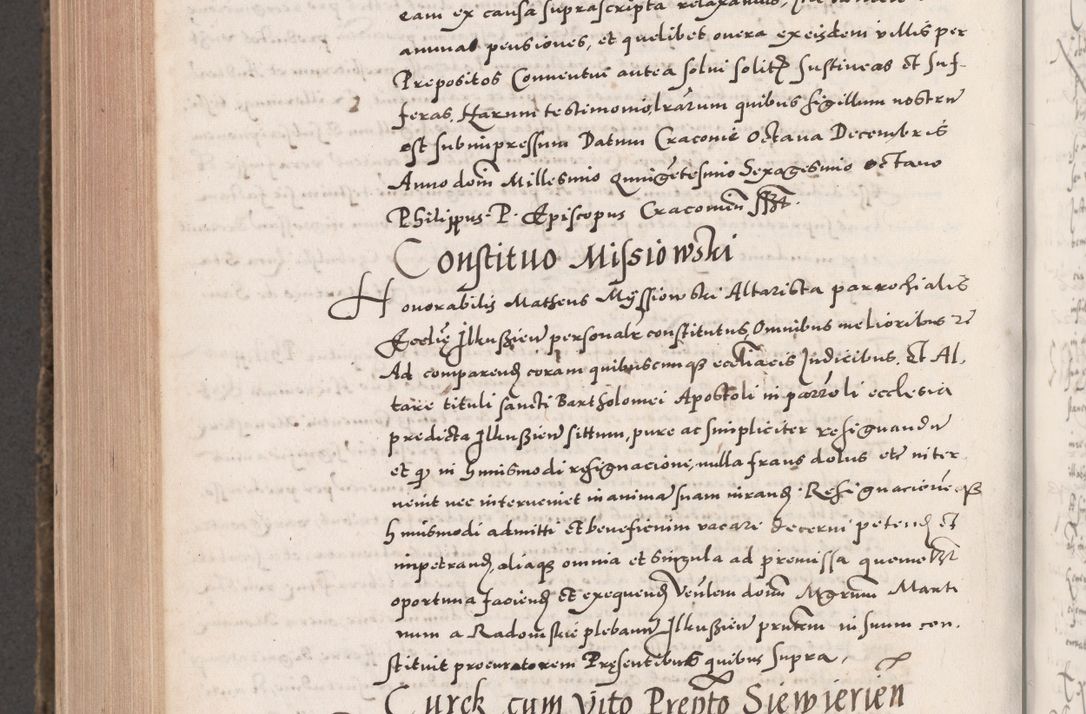 eam ex causa suprascripta relaxamus,
annuas pensiones, et quelibet onera ex eisdem villis per
Prepositos Conventui antea solui solit sustineas et suf-
feras, Harum testimonio lrarum quibus sigillum nostru
est subimpressum Datum Cracovie Octava Decembris
Anno domi Millesimo quingetesimo Sexagesimo octavo
Philippus P. Episcopus Cracovien sst.
Constituo Missiowski
Honorabilis Matheus Myssiowski Altarista parrochialis
Ecclie Jlkussien personalr constitutus, Omnibus melioribus
Ad comparend coram quibuscumque eccliacis Judicibus. Et Al-
tare tituli sancti Bartholomei Apostoli in parroli ecclesia
predicta Jlkussien situm, pure ac simpliciter resignandu
et q in huiusmodi resignacioni, nulla fraus dolus etc inter
venit nec interveniet in anima suam iurand Resignacionemq
huiusmodi admitti et beneficium vacare decerni petend et
impetrand, aliaque omnia et singula ad premissa quemelibet
oportuna faciend et exequend Venlem domi Mgrum Marti
num a Radomskie plebanu Jlkussien prntem in suum con-
stituit procuratorem Presentibus quibus supra.
Curek cum Vito Prepto Siewierien